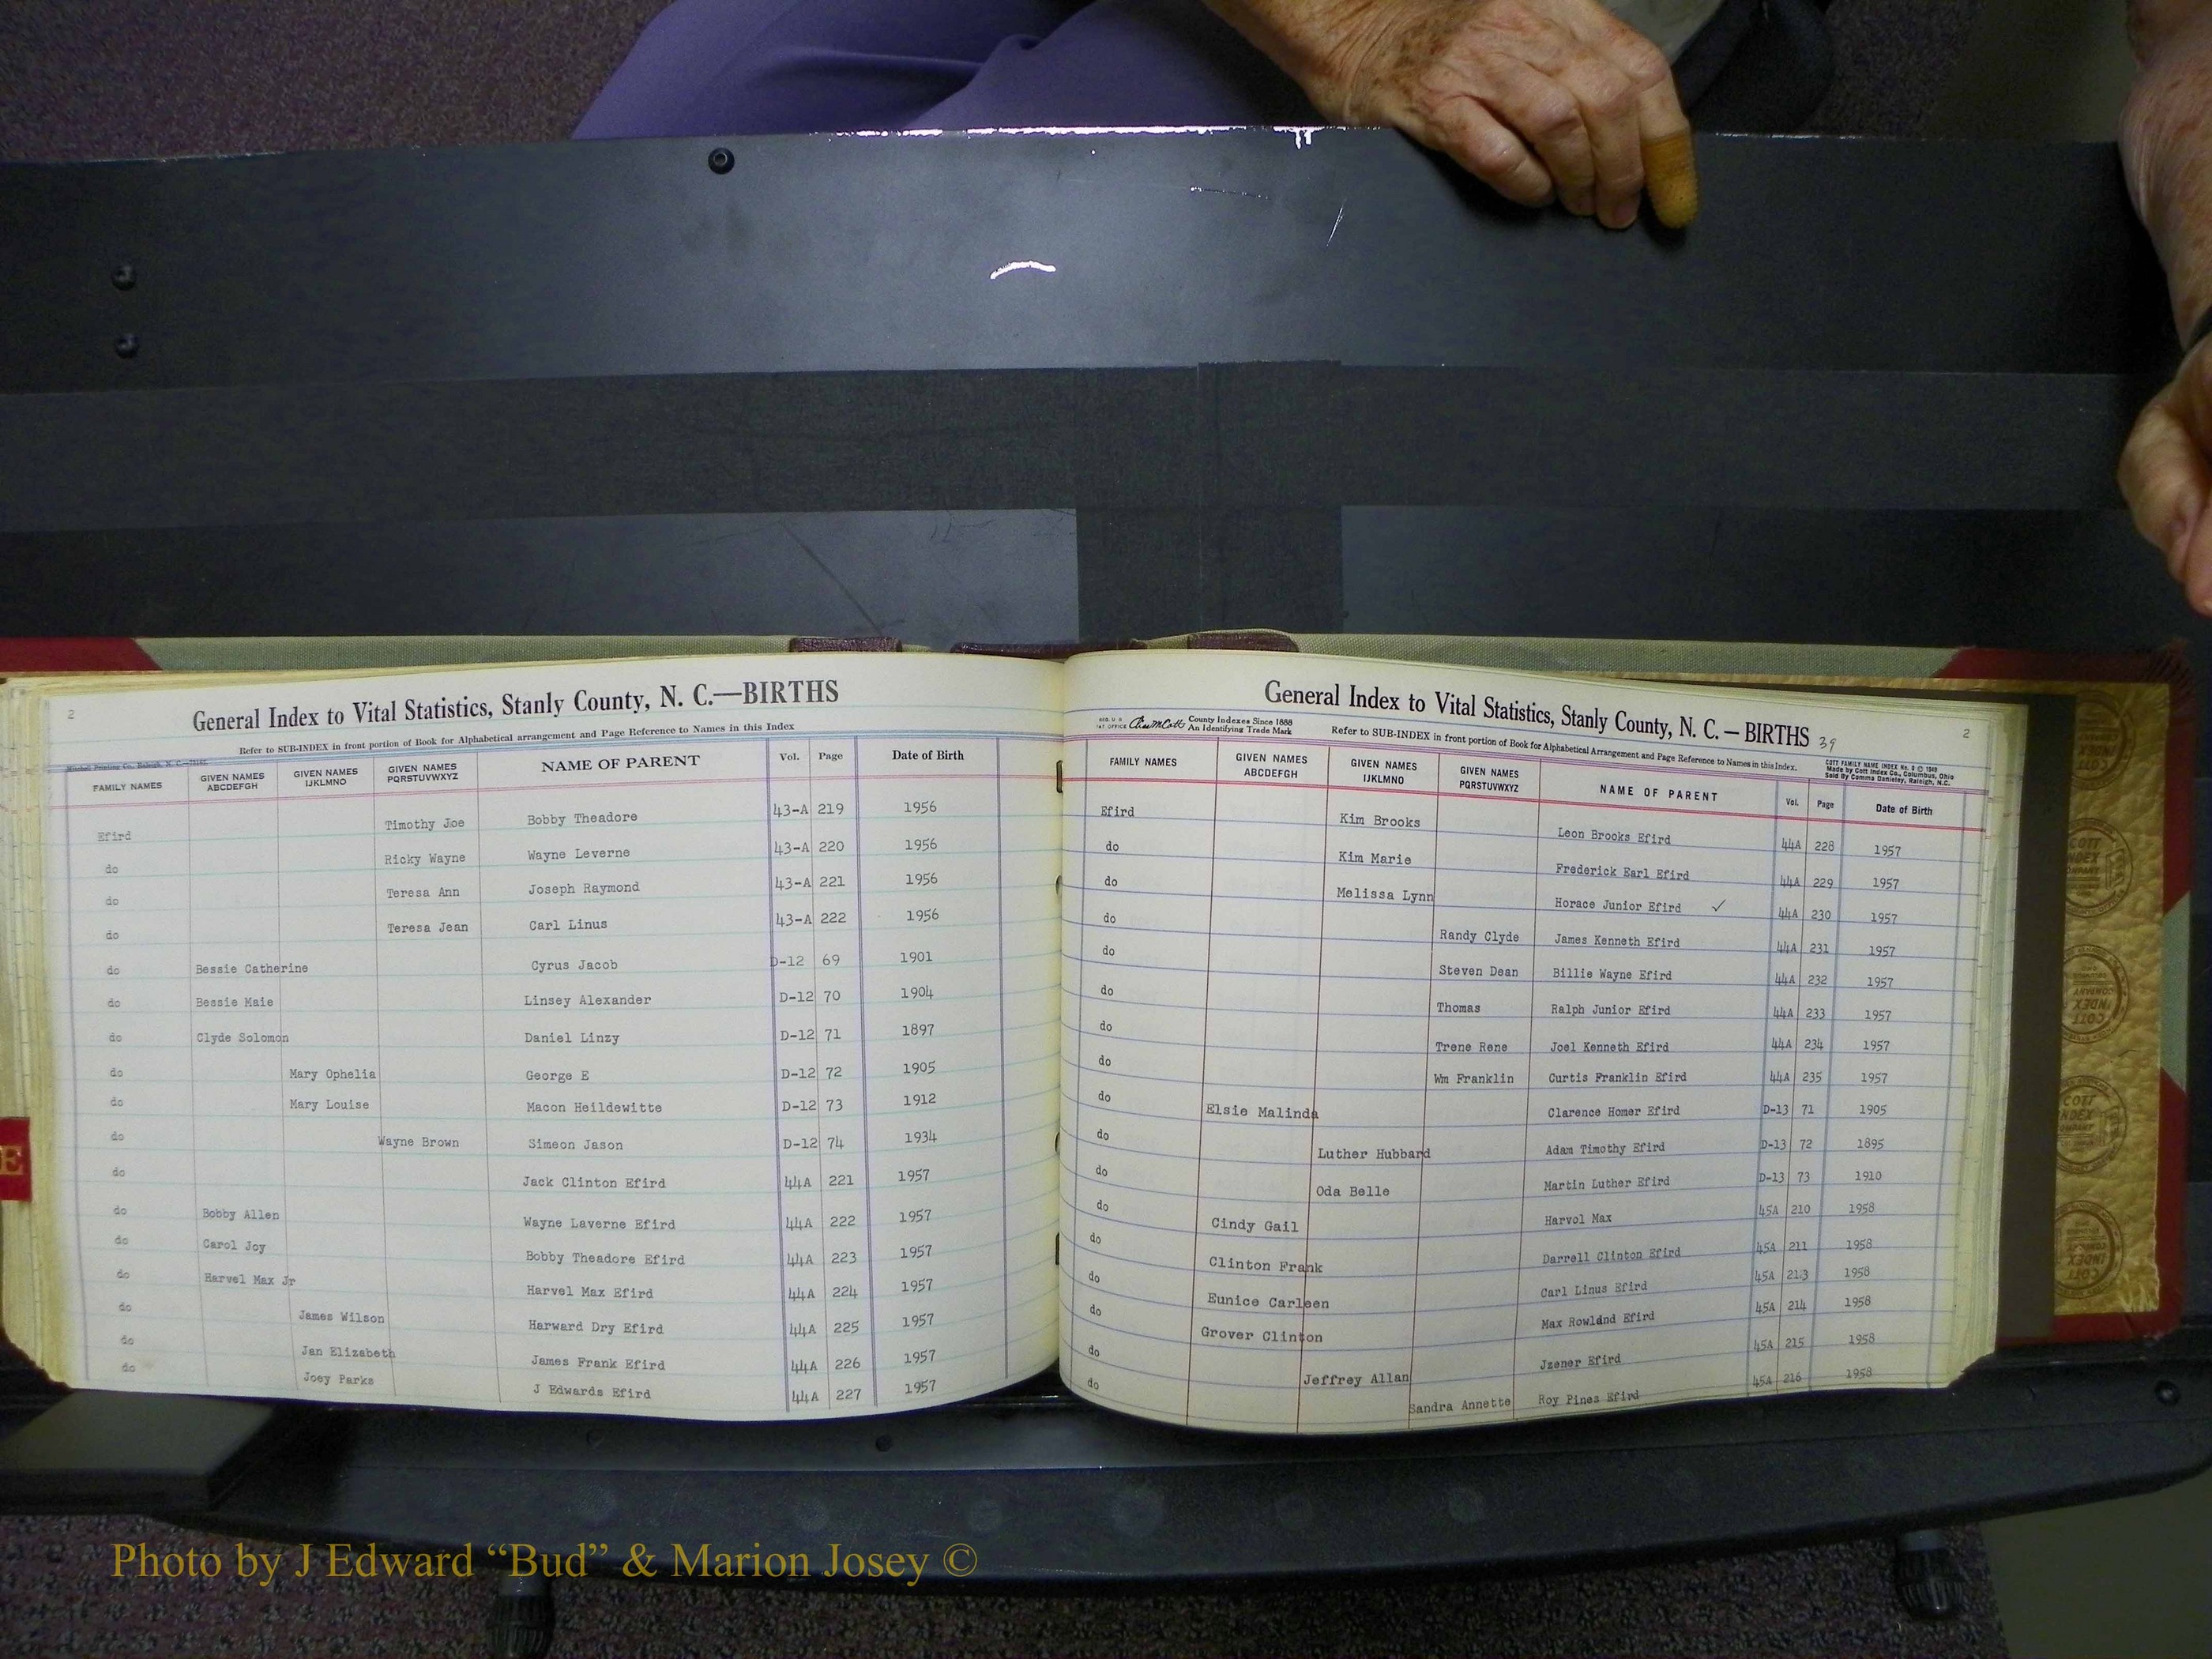 2
General Index to Vital Statistics, Stanly County, N. C.—BIRTHS
Refer to SUB-INDEX in front portion of Book for Alphabetical arrangement and Page Reference to Names in this Index
FAMILY NAMES GIVEN NAMES ABCDEFGH GIVEN NAMES IJKLMNO GIVEN NAMES PQRSTUVWXYZ NAME OF PARENT Vol. Page Date of Birth
Efird Timothy Joe Bobby Theadore 43-A 219 1956
do Ricky Wayne Wayne Leverne 43-A 220 1956
do Teresa Ann Joseph Raymond 43-A 221 1956
do Teresa Jean Carl Linus 43-A 222 1956
do Bessie Catherine Cyrus Jacob D-12 69 1901
do Bessie Maie Linsey Alexander D-12 70 1904
do Clyde Solomon Daniel Linzy D-12 71 1897
do Mary Ophelia George E D-12 72 1905
do Mary Louise Macon Heildewitte D-12 73 1912
do Wayne Brown Simeon Jason D-12 74 1934
do Jack Clinton Efird 44A 221 1957
do Bobby Allen Wayne Laverne Efird 44A 222 1957
do Carol Joy Bobby Theadore Efird 44A 223 1957
do Harvel Max Jr Harvel Max Efird 44A 224 1957
do James Wilson Harward Dry Efird 44A 225 1957
do Jan Elizabeth James Frank Efird 44A 226 1957
do Joey Parks J Edwards Efird 44A 227 1957
E
General Index to Vital Statistics, Stanly County, N. C. — BIRTHS 39
2
County Indexes Since 1888
An Identifying Trade Mark
Refer to SUB-INDEX in front portion of Book for Alphabetical Arrangement and Page Reference to Names in this Index.
COTT FAMILY NAME INDEX No. 2 © 1949
Made by Cott Index Co., Columbus, Ohio
Sold By Comma Danieley, Raleigh, N.C.
FAMILY NAMES GIVEN NAMES ABCDEFGH GIVEN NAMES IJKLMNO GIVEN NAMES PQRSTUVWXYZ NAME OF PARENT Vol. Page Date of Birth
Efird Kim Brooks Leon Brooks Efird 44A 228 1957
do Kim Marie Frederick Earl Efird 44A 229 1957
do Melissa Lynn Horace Junior Efird ✓ 44A 230 1957
do Randy Clyde James Kenneth Efird 44A 231 1957
do Steven Dean Billie Wayne Efird 44A 232 1957
do Thomas Ralph Junior Efird 44A 233 1957
do Trene Rene Joel Kenneth Efird 44A 234 1957
do Wm Franklin Curtis Franklin Efird 44A 235 1957
do Elsie Malinda Clarence Homer Efird D-13 71 1905
do Luther Hubbard Adam Timothy Efird D-13 72 1895
do Oda Belle Martin Luther Efird D-13 73 1910
do Cindy Gail Harvol Max 45A 210 1958
do Clinton Frank Darrell Clinton Efird 45A 211 1958
do Eunice Carleen Carl Linus Efird 45A 213 1958
do Grover Clinton Max Rowland Efird 45A 214 1958
do Jeffrey Allan Jzener Efird 45A 215 1958
do Sandra Annette Roy Pines Efird 45A 216 1958
Photo by J Edward “Bud” & Marion Josey ©